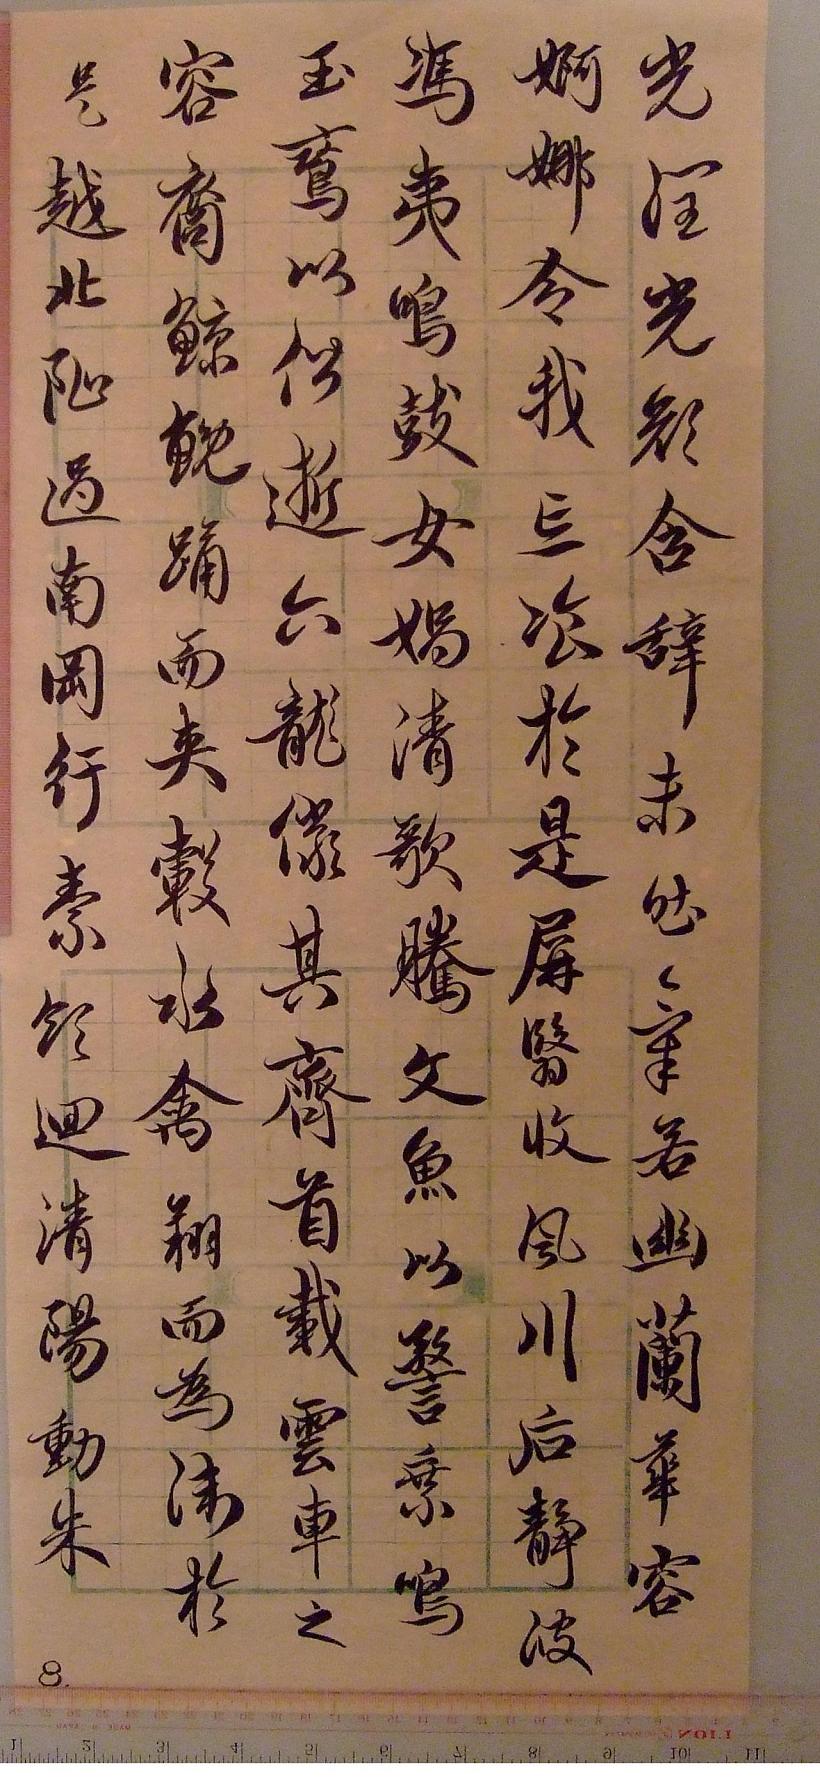 光潤光顏含辞未吐氣若幽蘭華容
婀娜令我忘飡於是屏翳收風川后静波
馮夷鳴鼓女媧清歌騰文魚以警乗鳴
玉鸞以偕逝六龍儼其齊首載雲車之
容裔鯨鯢踊而夾轂水禽翔而為衛於
是越北沚過南岡紆素領迴清陽動朱
8.
LION
1 2 3 4 5 6 7 8 9 10 11